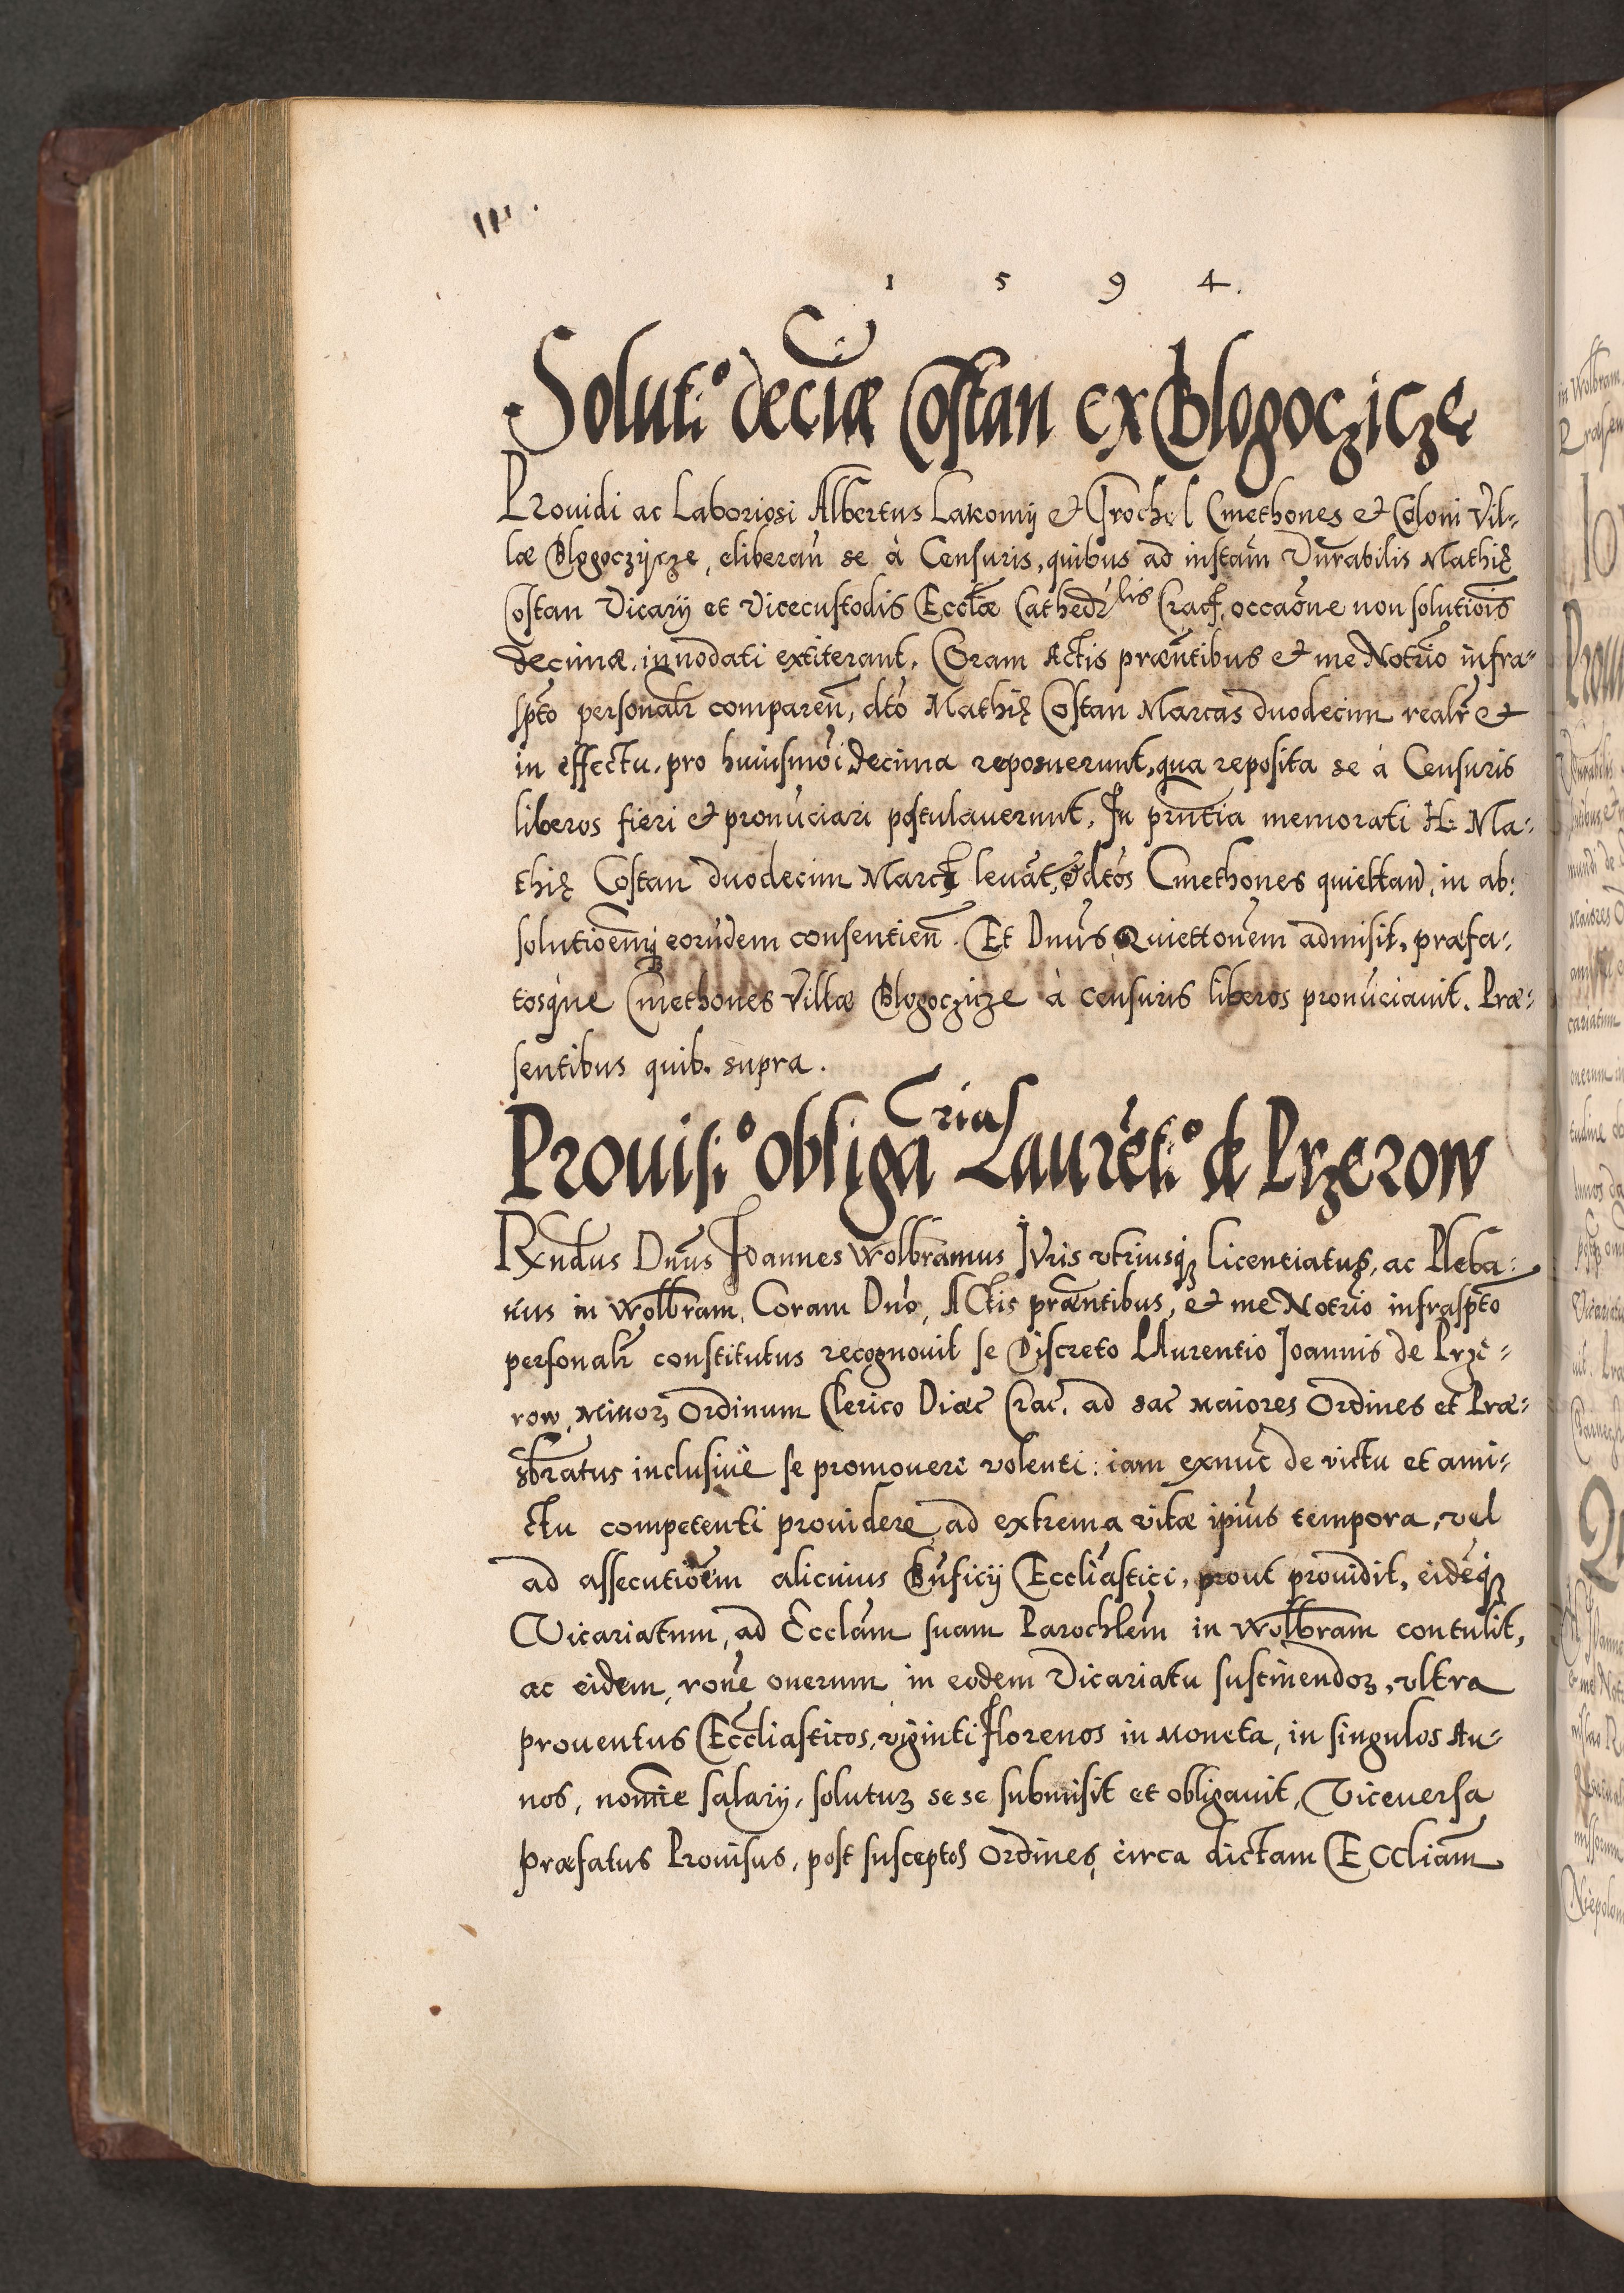 1 5 9 4.
Soluti° deciæ Costan ex Blogoczicze
Prouidi ac Laboriosi Albertus Lakomy et Grochol Cmethones et Coloni Vil-
læ Blogoczijcze, eliberan̄ se à Censuris, quibus ad instam̄ Vnrabilis Mathię
Costan Vicarij et Vicecustodis Ecclæ Cathedrlis Crac̄, occaōne non solutiois
decimæ, innodati extiterant. Coram Actis præntibus et me Notrio infra-
spto personalr̄ comparen̄, dto Mathię Costan Marcas duodecim realr̄ et
in effectu, pro huiusmoi decima reposuerunt, qua reposita se à Censuris
liberos fieri et pronūciari postulauerunt, In prntia memorati H. Ma-
thię Costan duodecim Marcas leuāt, et dtos Cmethones quiettan̄, in ab-
solutioemq̧ eorūdem consentien̄. Et Dnūs Quiettouem admisit, præfa-
tosque Cmethones Villæ Blogoczicze à censuris liberos pronūciauit. Præ-
sentibus quib. supra.
Prouisi° obligaria Laurēti° de Przerow
Rxndus Dnūs Joannes Wolbramus Juris vtriusq̧ licentiatus, ac Pleba-
nus in Wolbram, Coram Dno, Actis præntibus, et me Notrio infraspto
personalr̄ constitutus recognouit se Discreto LAurentio Joannis de Prze-
row, Minorꝫ Ordinum Clerico Diæc̄ Crac̄. ad sac̄ Maiores Ordines et Præ-
sbratus inclusiuè se promoueri volenti: iam exnuc̄ de victu et ami-
ctu competenti prouidere ad extrema vitæ ipius tempora, vel
ad assecutioēm alicuius Bn̄ficij Eccliastici, prout prouidit, eidēq̧
Vicariatum, ad Ecclam suam Parochlem in Wolbram contulit,
ac eidem, rone onerum in eodem Vicariatu sustinendoꝫ, vltra
prouentus Eccliasticos, viginti florenos in Moneta, in singulos An-
nos, nomīe salarij, solutuꝫ sese submisit et obligauit, Viceuersa
præfatus Prouisus, post susceptos Ordines, circa dictam Eccliam